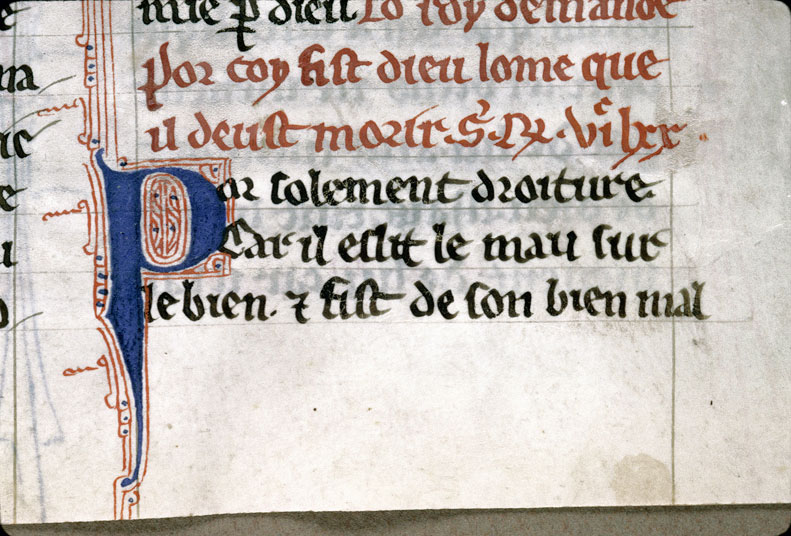 mie ꝑ dieu Lo roy demande
Por coy fist dieu lome que
il deust morir. S. ꝶ. .viᶜ. lxx.
Por solement droiture.
Car il eslit le mau sur
le bien. ⁊ fist de son bien mal